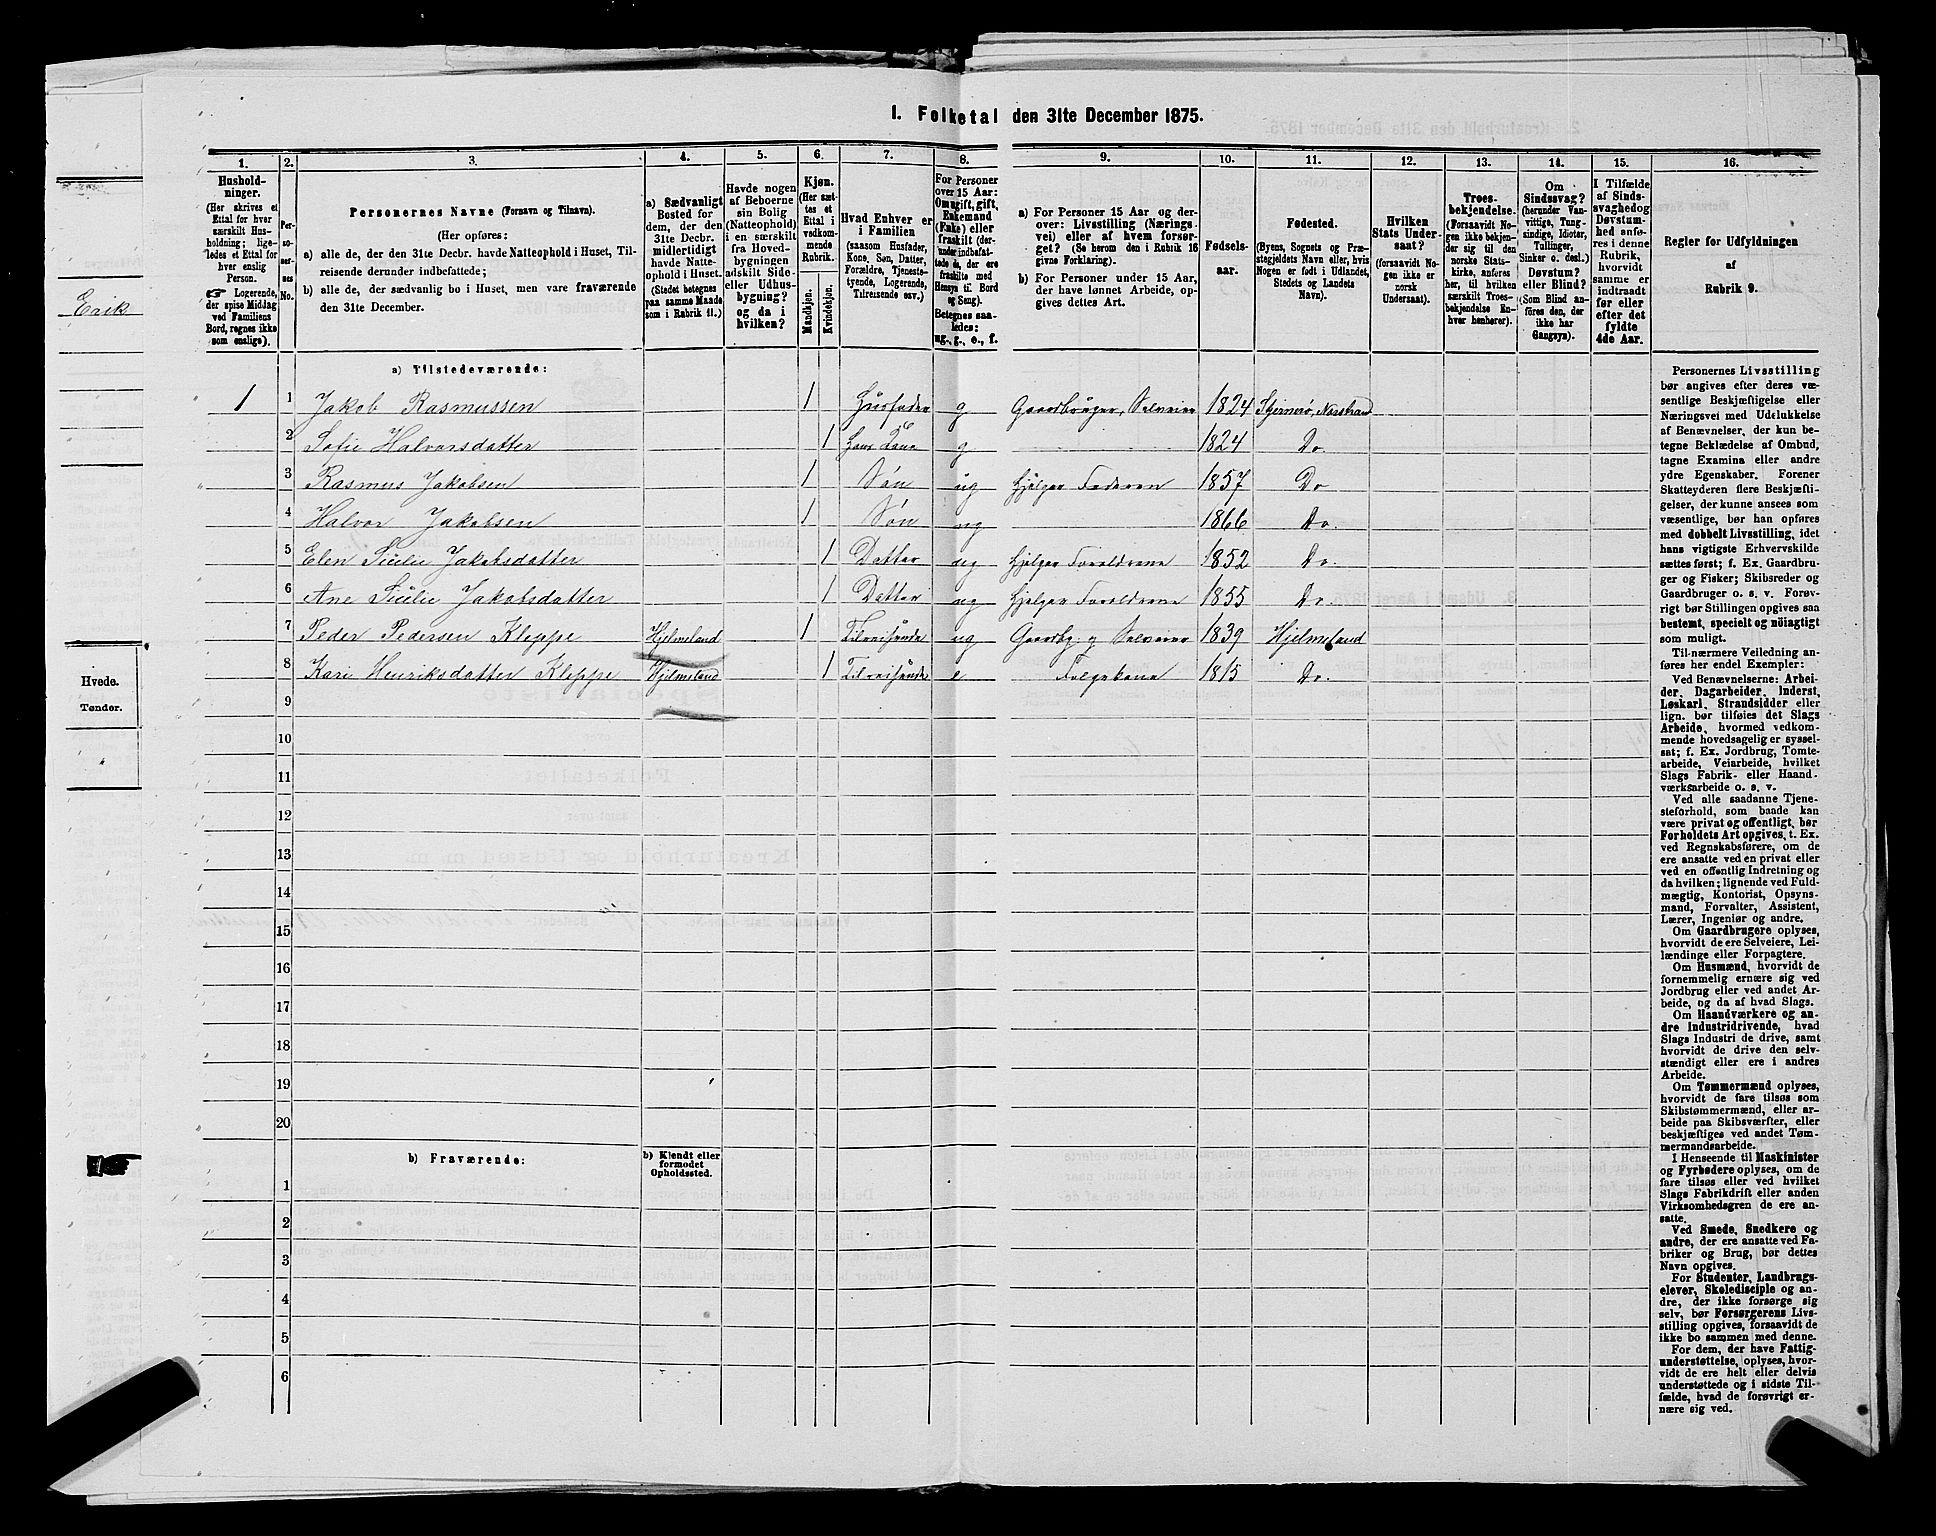 1. Folketal den 31te December 1875.
Erik
Hvede.
Tønder.
1.
2.
3.
4.
5.
6.
7.
8.
9.
10.
11.
12.
13.
14.
15.
16.
Hushold-
ninger.
(Her skrives et
Ettal for hver
særskilt Hus-
holdning; lige-
ledes et Ettal for
hver enslig
Person.
Logerende,
der spise Middag
ved Familiens
Bord, regnes ikke
som enslige).
Per-
so-
ner-
nes
No.
Personernes Navne (Fornavn og Tilnavn).
(Her opføres:
a) alle de, der den 31te Decbr. havde Natteophold i Huset, Til-
reisende derunder indbefattede;
b) alle de, der sædvanlig bo i Huset, men vare fraværende
den 31te December.
a) Sædvanligt
Bosted for
dem, der den
31te Decbr.
midlertidigt
havde Natte-
ophold i Huset.
(Stedet betegnes
paa samme Maade
som i Rubrik 11.)
Havde nogen
af Beboerne
sin Bolig
(Natteophold)
i en særskilt
fra Hoved-
bygningen
adskilt Side-
eller Udhus-
bygning?
og da i
hvilken?
Kjøn.
(Her sæt-
tes et
Ettal i
vedkom-
mende
Rubrik.
Mandkjøn.
Kvindekjøn.
Hvad Enhver er
i Familien
(saasom Husfader,
Kone, Søn, Datter,
Forældre, Tjeneste-
tyende, Logerende,
Tilreisende osv.)
For Personer
over 15 Aar:
Om ugift, gift,
Enkemand
(Enke) eller
fraskilt (der-
under indbefat-
tede de, der ere
fraskilte med
Hensyn til Bord
og Seng).
Betegnes saa-
ledes:
ug., g., e., f.
a) For Personer 15 Aar og der-
over: Livsstilling (Nærings-
vei) eller af hvem forsør-
get? (Se herom den i Rubrik 16
givne Forklaring).
b) For Personer under 15 Aar,
der have lønnet Arbeide, op-
gives dettes Art.
Fødsels-
aar.
Fødested.
(Byens, Sognets og Præ-
stegjeldets Navn eller, hvis
Nogen er født i Udlandet,
Stedets og Landets
Navn).
Hvilken
Stats Under-
saat?
(forsaavidt No-
gen ikke er
norsk
Undersaat).
Troes-
bekjendelse.
(Forsaavidt No-
gen ikke bekjen-
der sig til den
norske Stats-
kirke, anføres
her, til hvilken
særskilt Troes-
bekjendelse En-
hver henhører).
Om
Sindssvag?
(herunder Van-
vittige, Tung-
sindige, Idioter,
Tullinger,
Sinker o. desl.)
Døvstum?
eller Blind?
(Som Blind an-
føres den, der
ikke har
Gangsyn).
I Tilfælde
af Sinds-
svaghed og
Døvstum-
hed anfø-
res i denne
Rubrik,
hvorvidt
samme er
indtraadt
før eller
efter det
fyldte
4de Aar.
Regler for Udfyldningen
af
Rubrik 9.
a) Tilstedeværende:
1 1 Jakob Rasmussen 1 Husfader g Gaardbruger, Selveier 1824 Sjernerö, Nerstrand
2 Sofie Halvorsdatter 1 Hans Kone g 1824 Do
3 Rasmus Jakobsen 1 Søn ug Hjelper Faderen 1857 Do
4 Halvor Jakobsen 1 Søn ug 1866 Do.
5 Elen Sicilie Jakobsdatter 1 Datter ug Hjelper Foreldrene 1852 Do.
6 Ane Sicilie Jakobsdatter 1 Datter ug Hjelper Foreldrene 1855 Do.
7 Peder Pedersen Kleppe Hjelmeland 1 Tilreisende ug Gaardbr. g Selveier 1839 Hjelmeland
8 Kari Henriksdatter Kleppe Hjelmeland 1 Tilreisende e Folgekone 1815 Do.
9
10
11
12
13
14
15
16
17
18
19
20
b) Fraværende:
b) Kjendt eller
formodet
Opholdssted.
1
2
3
4
5
6
Personernes Livsstilling
bør angives efter deres væ-
sentlige Beskjæftigelse eller
Næringsvei med Udelukkelse
af Benævnelser, der kun be-
tegne Beklædelse af Ombud,
tagne Examina eller andre
ydre Egenskaber. Forener
Skatteyderen flere Beskjæfti-
gelser, der kunne ansees som
væsentlige, bør han opføres
med dobbelt Livsstilling, idet
hans vigtigste Erhvervskilde
sættes først; f. Ex. Gaardbru-
ger og Fisker; Skibsreder og
Gaardbruger o. s. v. Forøv-
rigt bør Stillingen opgives saa
bestemt, specielt og nöiagtigt
som muligt.
Til nærmere Veiledning an-
føres her endel Exempler:
Ved Benævnelserne: Arbei-
der, Dagarbeider, Inderst,
Løskarl, Strandsidder eller
lign. bør tilføies det Slags
Arbeide, hvormed vedkom-
mende hovedsagelig er syssel-
sat; f. Ex. Jordbrug, Tomte-
arbeide, Veiarbeide, hvilket
Slags Fabrik- eller Haand-
værksarbeide o. s. v.
Ved alle saadanne Tjene-
steforhold, som baade kan
være privat og offentligt, bør
Forholdets Art opgives, t. Ex.
ved Regnskabsførere, om de
ere ansatte ved en privat eller
ved en offentlig Indretning og
da hvilken; lignende ved Fuld-
mægtig, Kontorist, Opsyns-
mand, Forvalter, Assistent,
Lærer, Ingeniør og andre.
Om Gaardbrugere oplyses,
hvorvidt de ere Selveiere, Lei-
lændinge eller Forpagtere.
Om Husmænd, hvorvidt de
fornemmelig ernære sig ved
Jordbrug eller ved andet Ar-
beide, og da af hvad Slags.
Om Haandværkere og an-
dre Industridrivende, hvad
Slags Industri de drive, samt
hvorvidt de drive den selv-
stændigt eller ere i andres
Arbeide.
Om Tømmermænd oplyses,
hvorvidt de fare tilsøs som
Skibstømmermænd, eller ar-
beide paa Skibsværfter, eller
beskjæftiges ved andet Tøm-
mermandsarbeide.
I Henseende til Maskinister
og Fyrbødere oplyses, om de
fare tilsøs eller ved hvilket
Slags Fabrikdrift eller anden
Virksomhedsgren de ere an-
satte.
Ved Smede, Snedkere og
andre, der ere ansatte ved Fa-
briker og Brug, bør dettes
Navn opgives.
For Studenter, Landbrugs-
elever, Skoledisciple og an-
dre, der ikke forsørge sig
selv, bør Forsørgerens Livs-
stilling opgives, forsaavidt de
ikke bo sammen med denne.
For dem, der have Fattig-
understøttelse, oplyses, hvor-
vidt de ere helt eller delvis
understøttede og i sidste Til-
fælde, hvad de forøvrigt er-
nære sig ved.